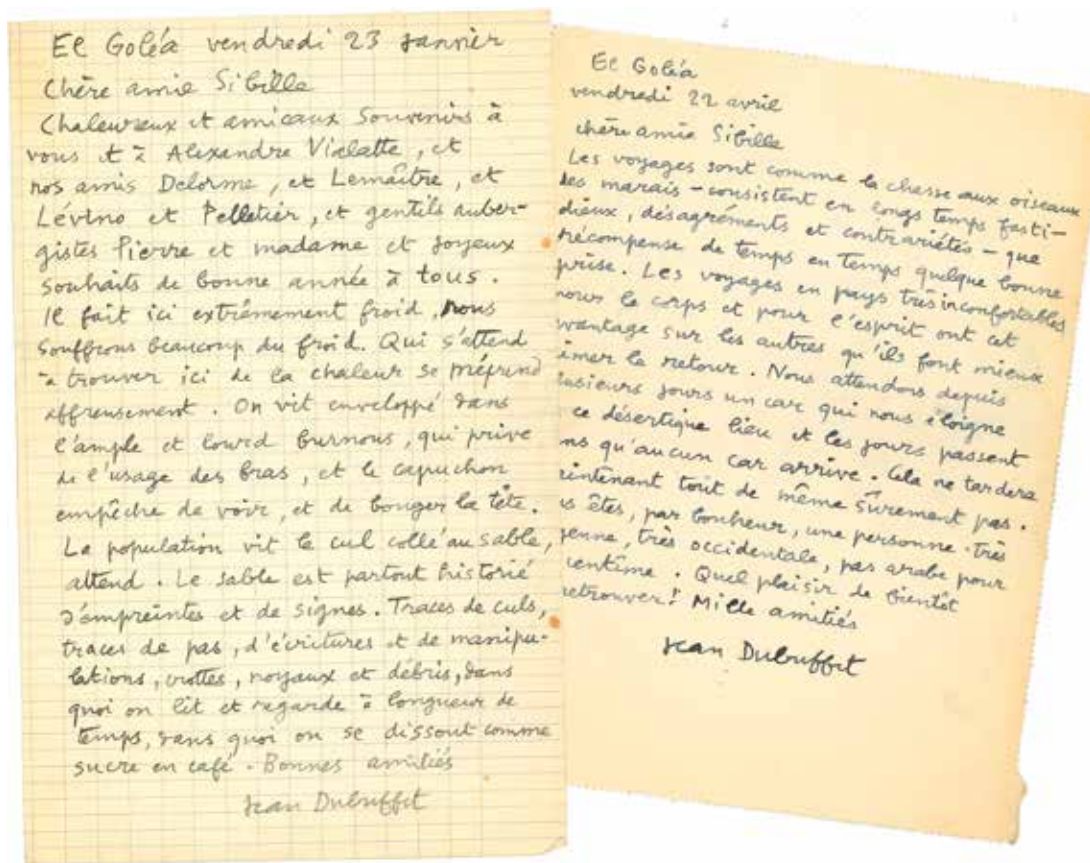 El Goléa vendredi 23 janvier
Chère amie Sibille
Chaleureux et amicaux souvenirs à
vous et à Alexandre Vialatte, et
nos amis Delorme, et Lemaître, et
Lévino et Pelletier, et gentils auber-
gistes Pierre et madame et joyeux
souhaits de bonne année à tous.
Il fait ici extrêmement froid, nous
souffrons beaucoup du froid. Qui s'attend
à trouver ici de la chaleur se méprend
affreusement. On vit enveloppé dans
l'ample et lourd burnous, qui prive
de l'usage des bras, et le capuchon
empêche de voir, et de bouger la tête.
La population vit le cul collé au sable,
attend. Le sable est partout historié
d'empreintes et de signes. Traces de culs,
traces de pas, d'écritures et de manipu-
lations, crottes, noyaux et débris, dans
quoi on lit et regarde à longueur de
temps, dans quoi on se dissout comme
sucre en café. Bonnes amitiés
Jean Dubuffet
El Goléa
vendredi 22 avril
chère amie Sibille
Les voyages sont comme la chasse aux oiseaux
des marais – consistent en longs temps fasti-
dieux, désagréments et contrariétés – que
récompense de temps en temps quelque bonne
prise. Les voyages en pays très inconfortables
pour le corps et pour l'esprit ont cet
avantage sur les autres qu'ils font mieux
aimer le retour. Nous attendons depuis
plusieurs jours un car qui nous éloigne
ce désertique lieu et les jours passent
ns qu'aucun car arrive. Cela ne tardera
aintenant tout de même sûrement pas.
s êtes, par bonheur, une personne très
enne, très occidentale, pas arabe pour
centime. Quel plaisir de bientôt
retrouver! Mille amitiés
Jean Dubuffet